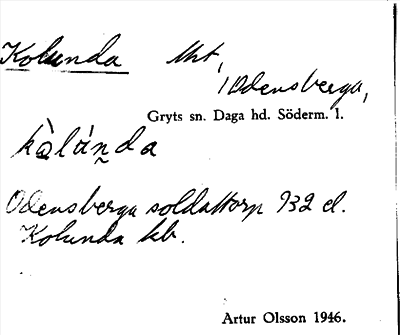 Kolunda tht,
i Odensberga,
Gryts sn. Daga hd. Söderm. l.
kὰlúnda
Odensberga soldattorp 932 el.
Kolunda kb.
Artur Olsson 1946.